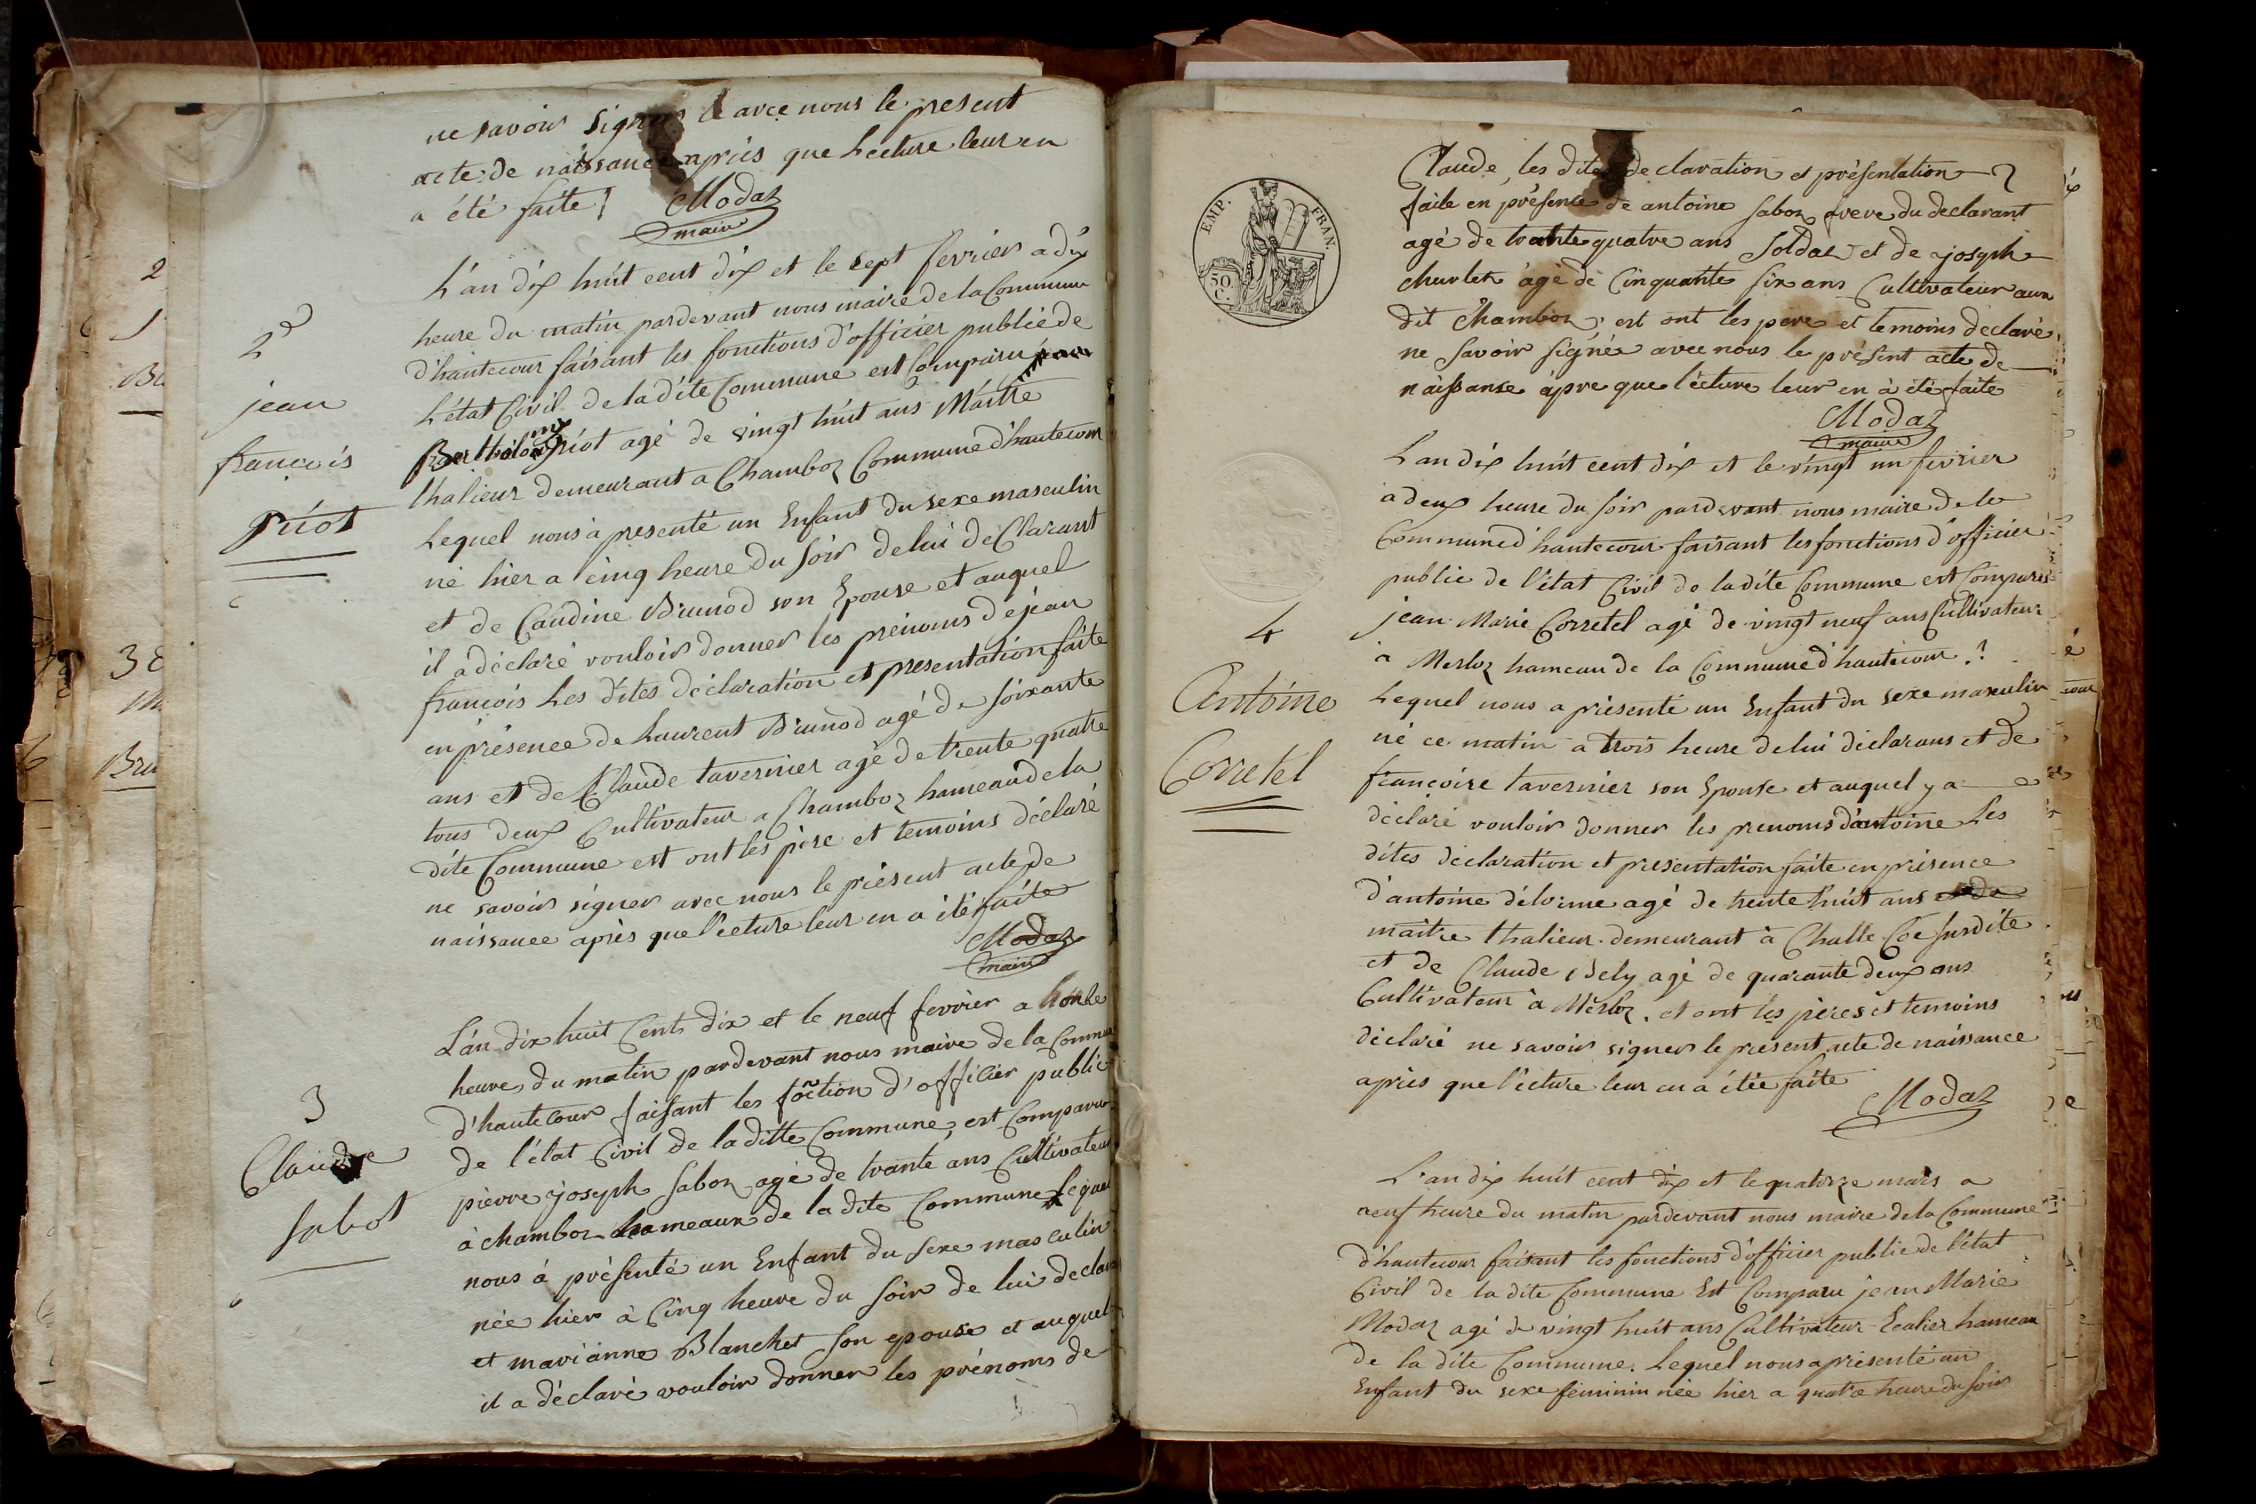 ne savoir signer avec nous le present
acte de naissance après que Lecture leur en
a été faite Modaz
maire
2e
jean
francois
piot
L'an dix huit cent dix et le sept fevrier a dix
heure du matin pardevant nous maire de la Commune
d'hautecour faisant les fonctions d'officier public de
L'état Civil de la dite Commune est Comparu
Barthelemy piot agé de vingt huit ans Maitre
thalieur demeurant a Chamboz Commune d'hautecour
Lequel nous a presenté un Enfant du sexe masculin
né hier a cinq heure du soir de lui de Clarant
et de Caudine Brunod son Epouse et auquel
il a déclaré vouloir donner les prénoms de jean
francois Les dites déclaration et presentation faite
en présence de Laurent Brunod agé de soixante
ans et de Claude tavernier agé de trente quatre
tous deux Cultivateur a Chamboz hameau de la
dite Commune est ont les père et temoins déclaré
ne savoir signer avec nous le présent acte de
naissance après que l'ecture leur en a été faite
Modaz
maire
3
Claude
sabot
L'an dix huit Cents dix et le neuf fevrier a
heure du matin pardevant nous maire de la Commu
d'hautecour faisant les foction d'officier public
de l'état Civil de la ditte Commune, est Comparu
pierre joseph saboz agé de trante ans Cultivateur
à chamboz hameaux de la dite Commune Lequel
nous à présenté un Enfant du sexe masculin
née hier à Cinq heure du soir de lui declar
et marianne Blanchet son epouse et auquel
il a déclaré vouloir donner les prénoms de
EMP. FRAN.
50
C.
Claude, les dites declaration et présentation
faite en présence de antoine saboz frere du declarant
agé de trante quatre ans Soldaz et de joseph
churlet agé de Cinquante six ans Cultivateur aux
dit Chamboz, est ont les pere et temoins declaré
ne savoir signér avec nous le présent acte de
naissanse àpre que lecture leur en à été faite
Modaz
maire
4
Antoine
Corretel
L an dix huit cent dix et le vingt un fevrier
a deux heure du soir pardevant nous maire de la
Commune d'hautecour faisant les fonctions d'officier
public de l'état Civil de la dite Commune est Comparus
jean Marie Corretel agé de vingt neuf ans Cultivateur
a Merloz hameau de la Commune d'hautecour
Lequel nous a présenté un Enfant du sexe masculin
né ce matin a trois heure de lui déclarans et de
françoise tavernier son Epouse et auquel y a
déclaré vouloir donner les prenoms d'antoine Les
dites déclaration et presentation faite en présence
d'antoine délorme agé de trente huit ans et de
maitre thalieur demeurant à Challe Coe susdite
et de Claude Bely agé de quarante deux ans
Cultivateur à Merloz. et ont les pères et temoins
déclaré ne savoir signer le présent acte de naissance
après que l'écture leur en a étée faite
Modaz
L'an dix huit cent dix et le quatorze mars a
neuf heure du matin pardevant nous maire de la Commune
d'hautecour faisant les fonctions d'officier public de l'état
Civil de la dite Commune Est Comparu jean Marie
Modaz agé de vingt huit ans Cultivateur Ecalier hameau
de la dite Commune. Lequel nous a présenté un
Enfant du sexe féminin née hier a quatre heure du soir